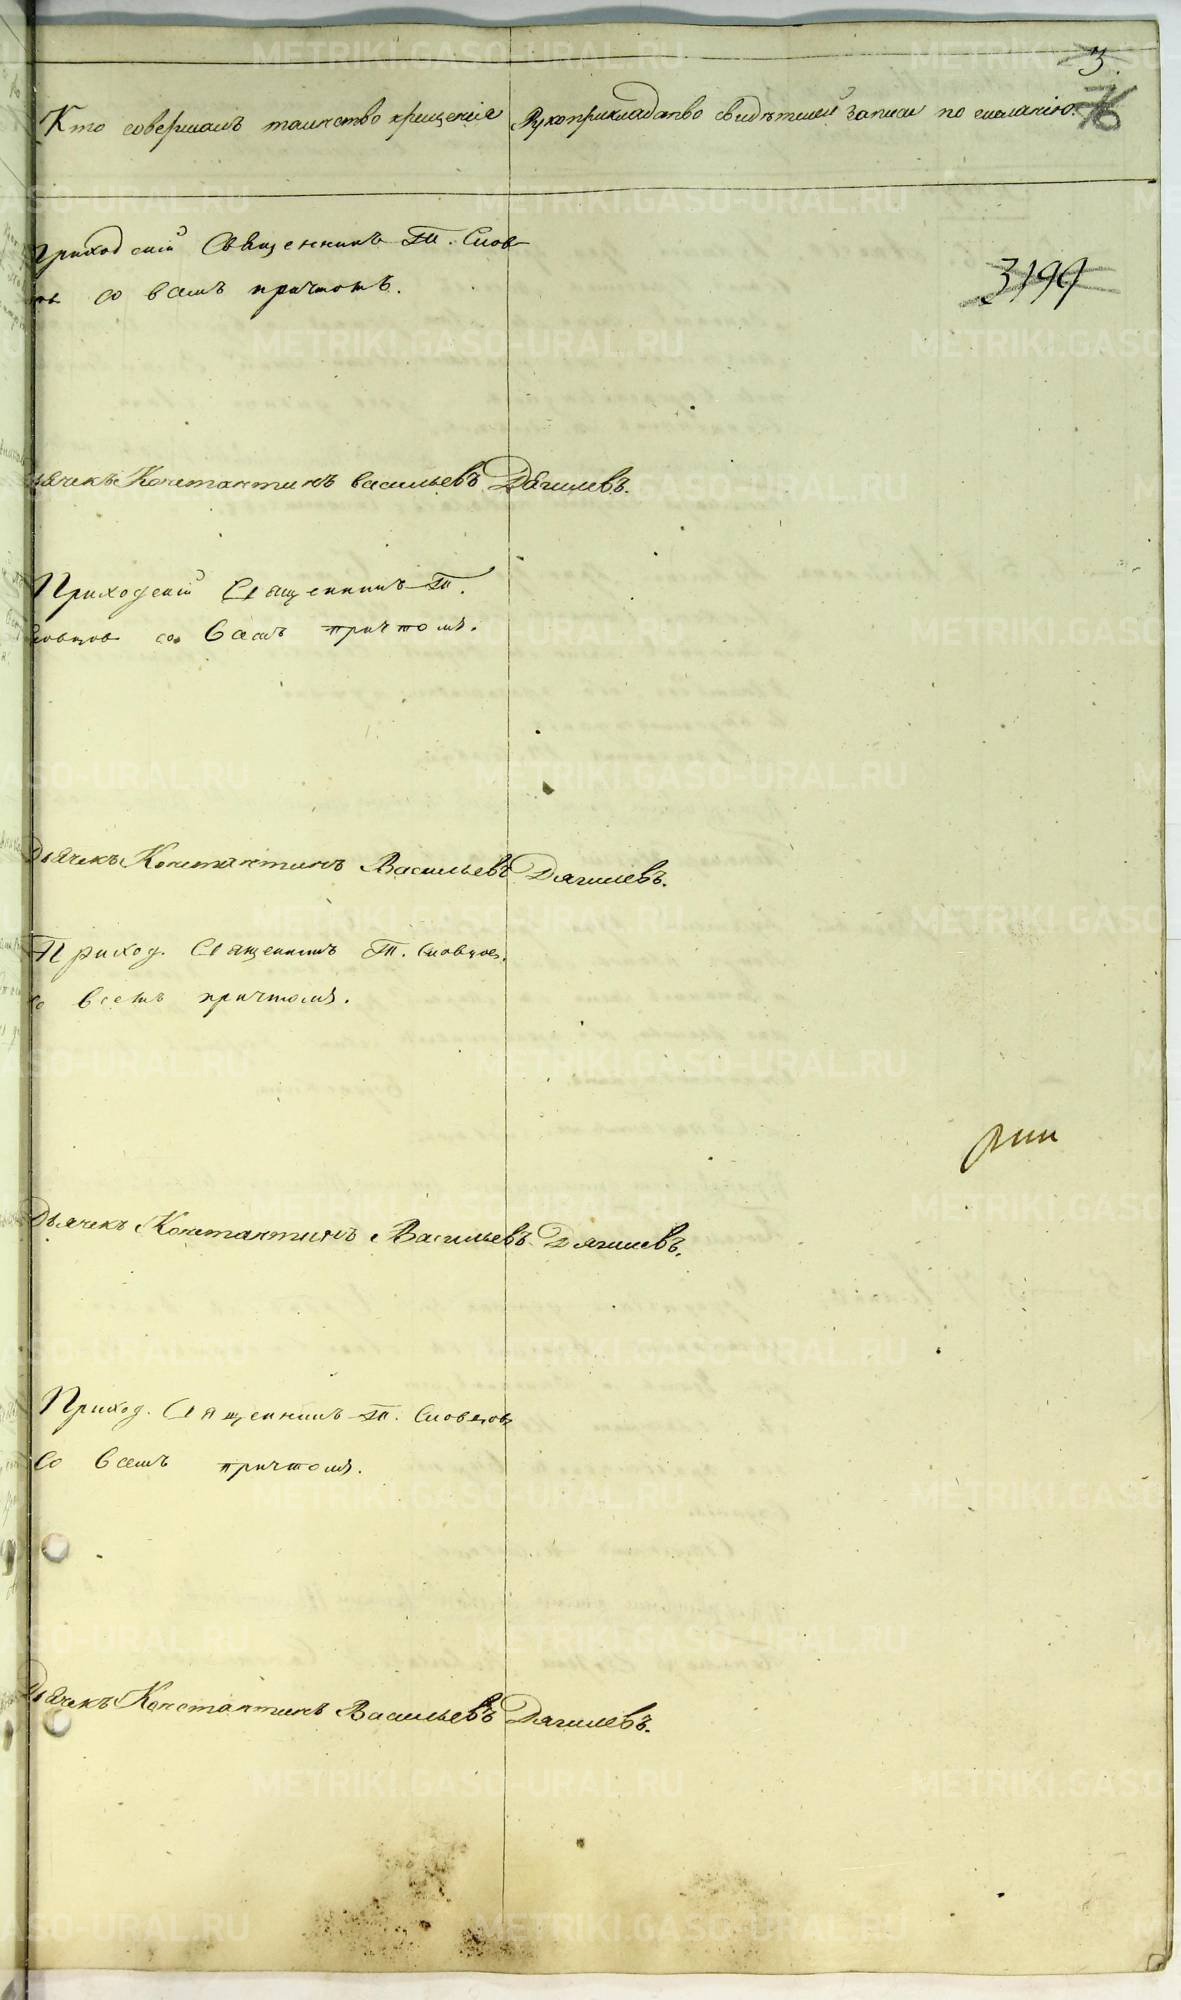 3.
76
Кто совершалъ таинство крещенія
Рукоприкладство свидѣтелей записи по желанію.
Приходскій Священникъ Т. Слов-
со всѣмъ причтомъ.
3199
Дьячекъ Константинъ Васильевъ Дягилевъ.
Приходскій Священникъ Т.
Словцов со всѣмъ причтомъ.
Дьячекъ Константинъ Васильевъ Дягилевъ.
Приход. Священникъ Т. Словцов.
со всемъ причтомъ.
Дьячекъ Константинъ Васильевъ Дягилевъ.
Приход. Священникъ Т. Словцовъ
Со всемъ причтомъ.
Дьячекъ Константинъ Васильевъ Дягилевъ.
METRIKI.GASO-URAL.RU